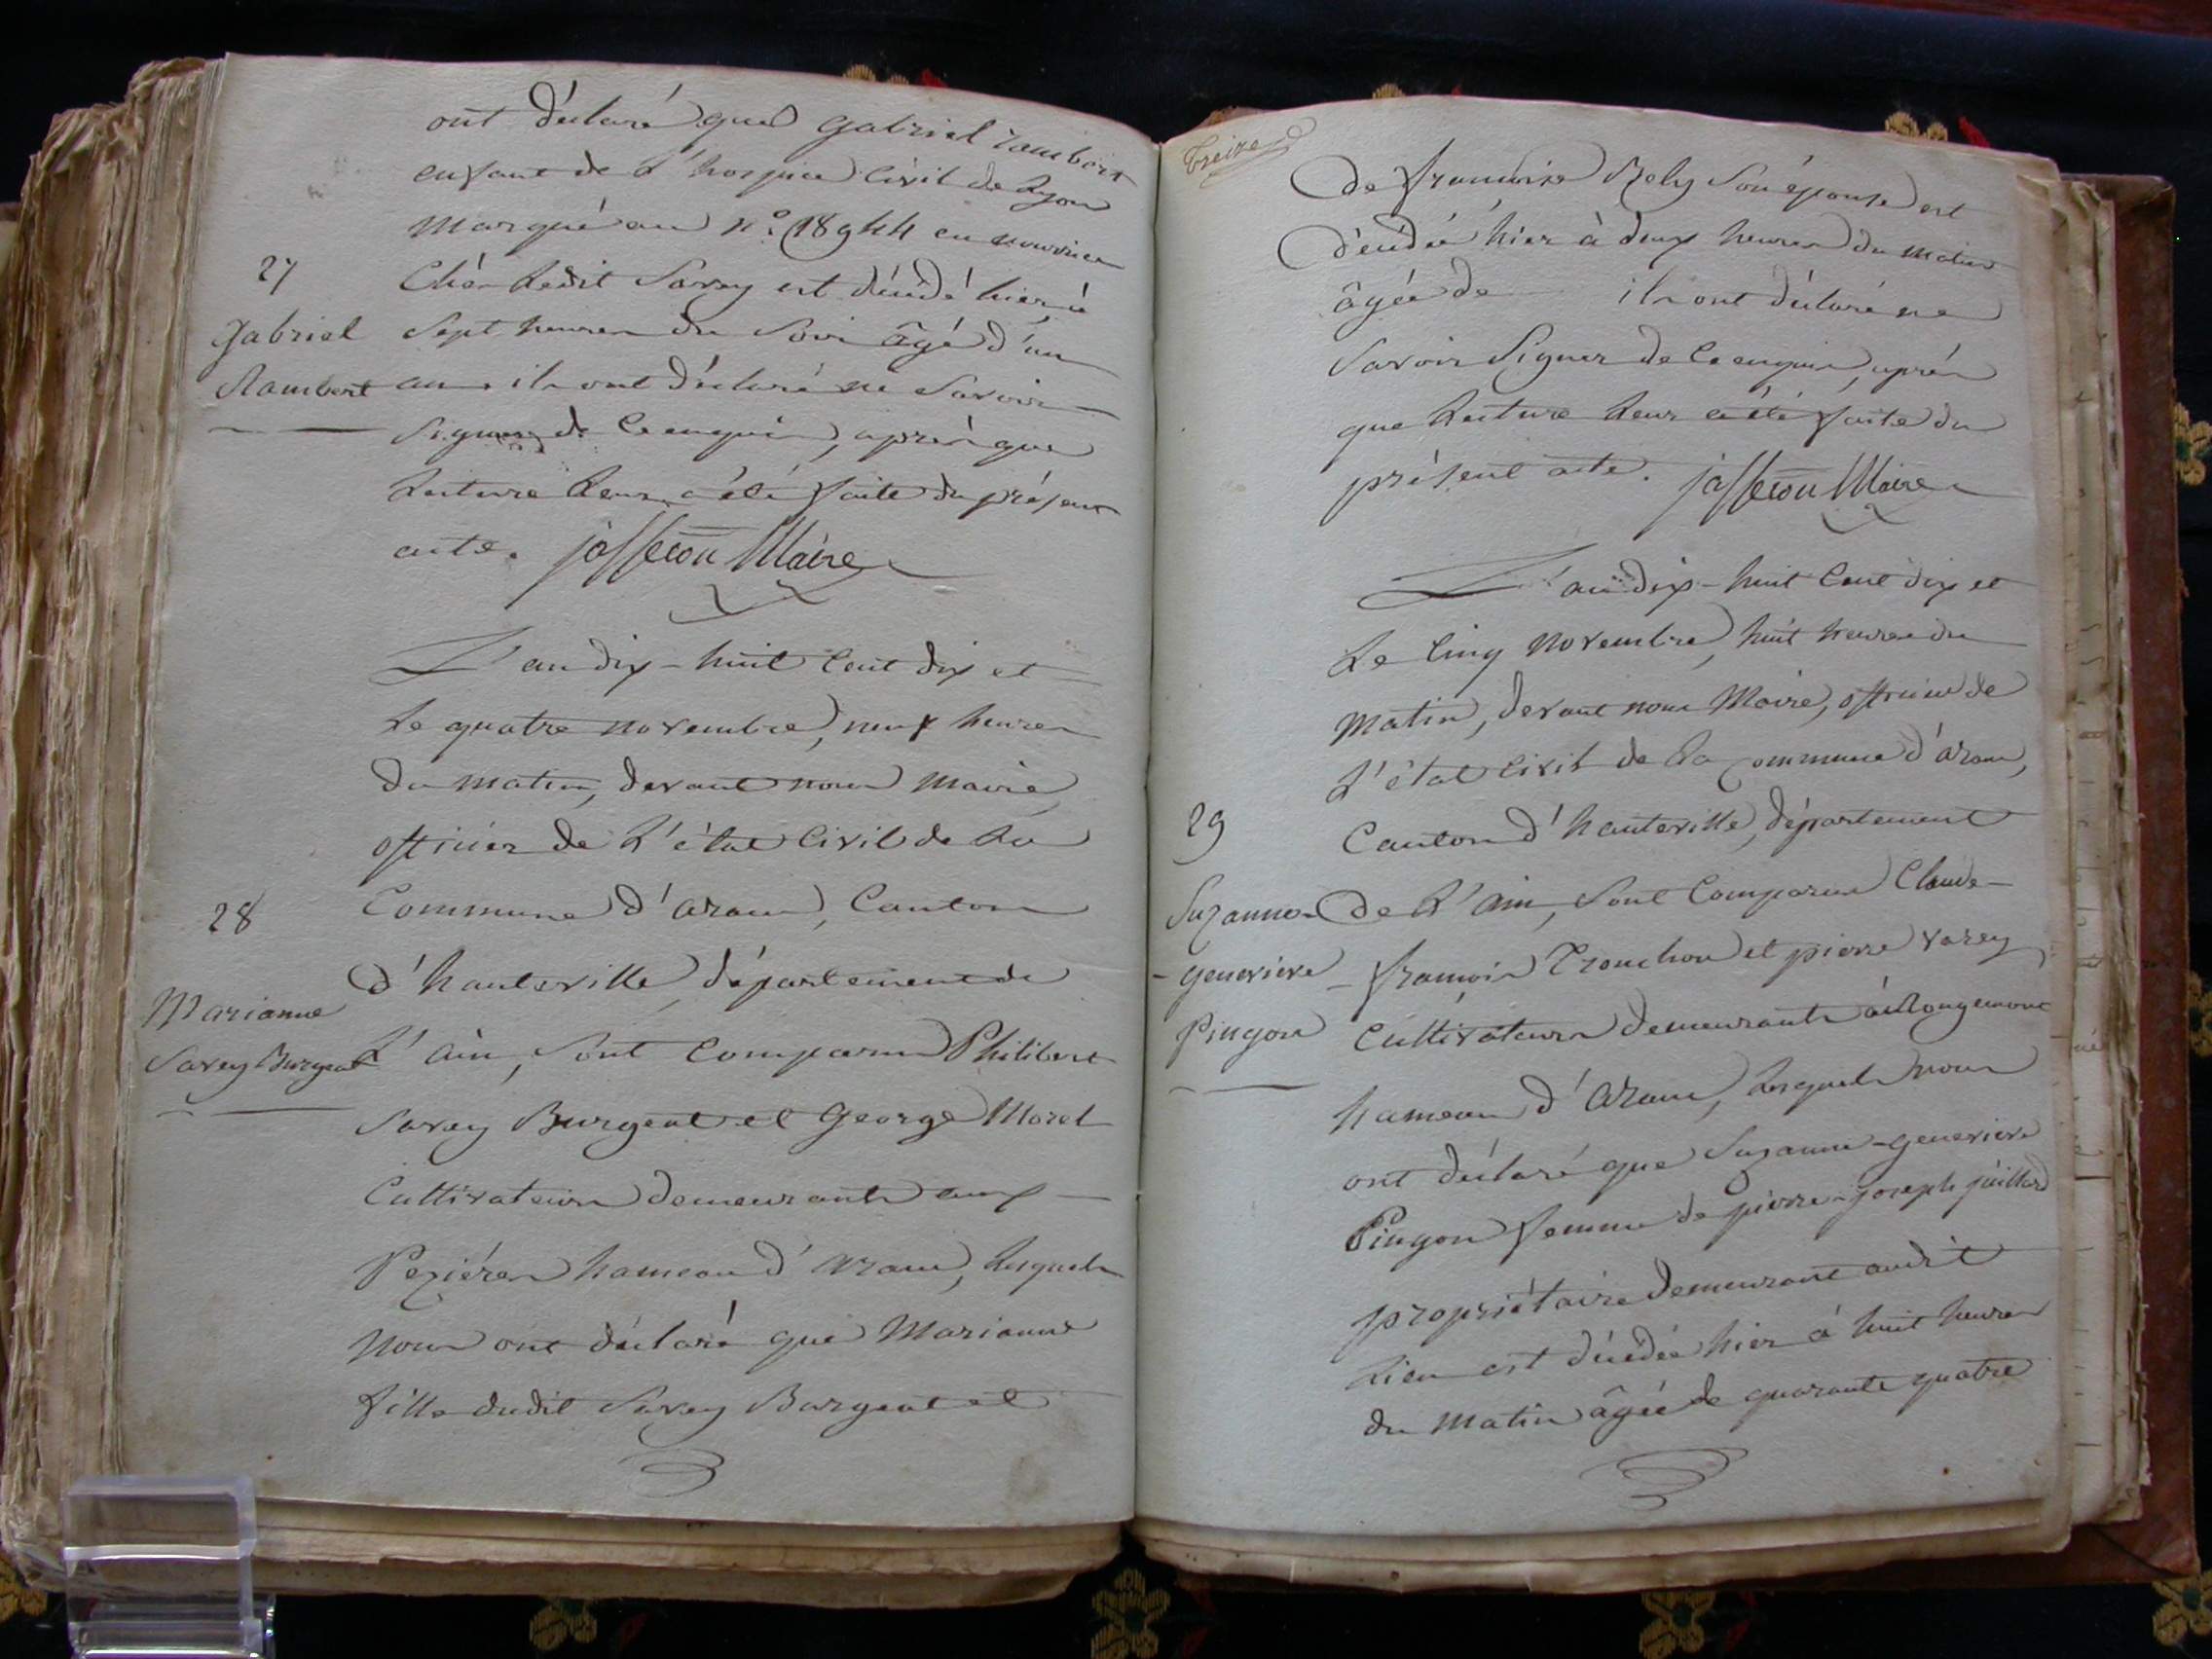 ont déclaré que gabriel rambert
enfant de l'hospice civil de Lyon
marqué au n.º 18944 en nourrice
27
chés ledit Savey est décédé hier, à
gabriel
sept heures du soir âgé d'un
Rambert
an. ils ont déclaré ne savoir
signer de ce enquis, après que
lecture leur a été faite du présent
acte. josserou Maire
L'an dix-huit cent dix et
le quatre novembre, neuf heures
du matin, devant nous maire,
officier de l'état civil de la
28
commune d'aranc, canton
d'hauteville, département de
Marianne
Savey Burgeat
l'ain, sont comparus Philibert
Savey Burgeat et George Morel
cultivateurs demeurants aux
Pezières hameau d'aranc, lesquels
nous ont déclaré que Marianne
fille dudit Savey Burgeat et
Treize
de françoise Rely son épouse est
décédée hier à deux heures du matin
âgée de ils ont déclaré ne
savoir signer de ce enquis, après
que lecture leur a été faite du
présent acte. josserou Maire
L'an dix-huit cent dix et
le cinq novembre, huit heures du
matin, devant nous Maire, officier de
l'état civil de la commune d'aranc,
29
canton d'hauteville, département
Suzanne
de l'ain, sont comparus Claude
-genevieve
françois Tronchon et pierre varey
Pingon
cultivateurs demeurants à Rougemont
hameau d'aranc, lesquels nous
ont déclaré que Suzanne-genevieve
Pingon femme de pierre-joseph juillard
propriétaire demeurant audit
lieu est décédée hier à huit heures
du matin âgée de quarante quatre